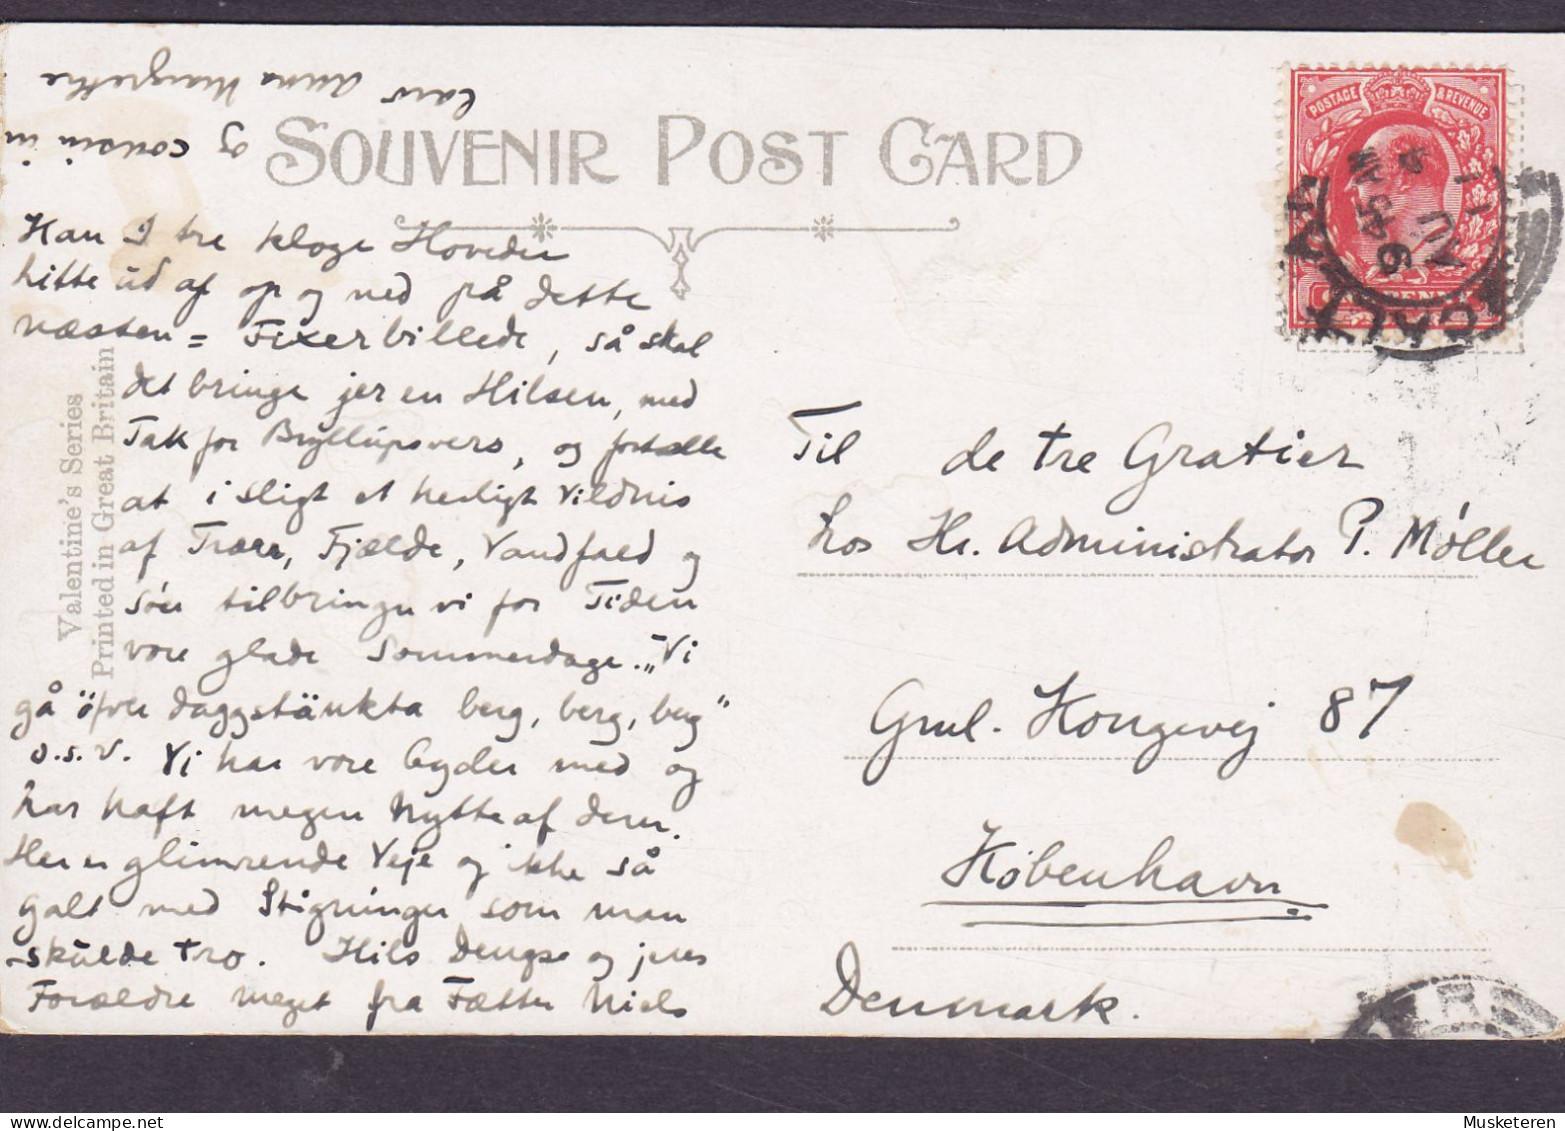 SOUVENIR POST CARD
Kan I tre kloge Hoveder
hitte ud af op og ned på dette
næsten = Fixerbillede, så skal
det bringe jer en Hilsen, med
Tak for Bryllupsvers, og fortælle
at i sligt et herligt Vildnis
af Træer, Fjælde, Vandfald og
Søer tilbringer vi for Tiden
vore glade Sommerdage. „Vi
gå öfver daggstänkta berg, berg, berg"
o.s.v. Vi har vore Cycler med og
har haft megen Nytte af dem.
Her er glimrende Veje og ikke så
galt med Stigninger som man
skulde tro. Hils Dengse og jeres
Forældre meget fra Fætter Niels
og cousin in
law Anna Margrethe
Valentine's Series
Printed in Great Britain
POSTAGE & REVENUE
ONE PENNY
9 45 AM
AU 4
11
Til de tre Gratier
hos Hr. Administrator P. Møller
Gml. Kongevej 87
København
Denmark.
Musketeren